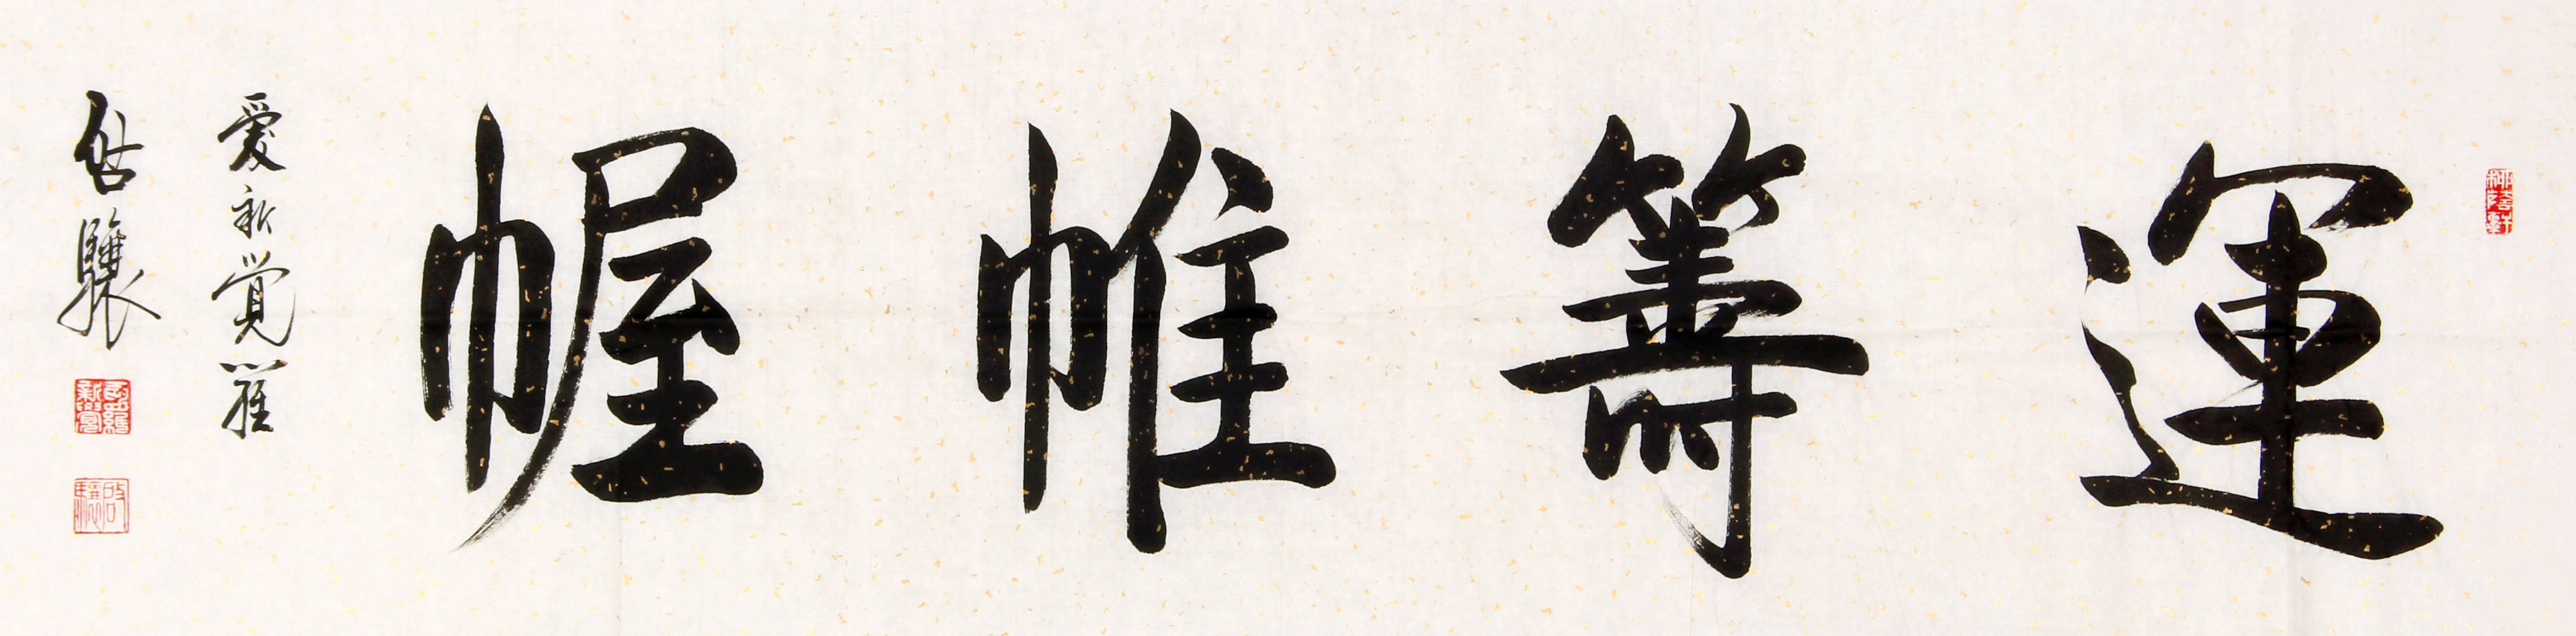 運籌帷幄
愛新覚羅
启驤